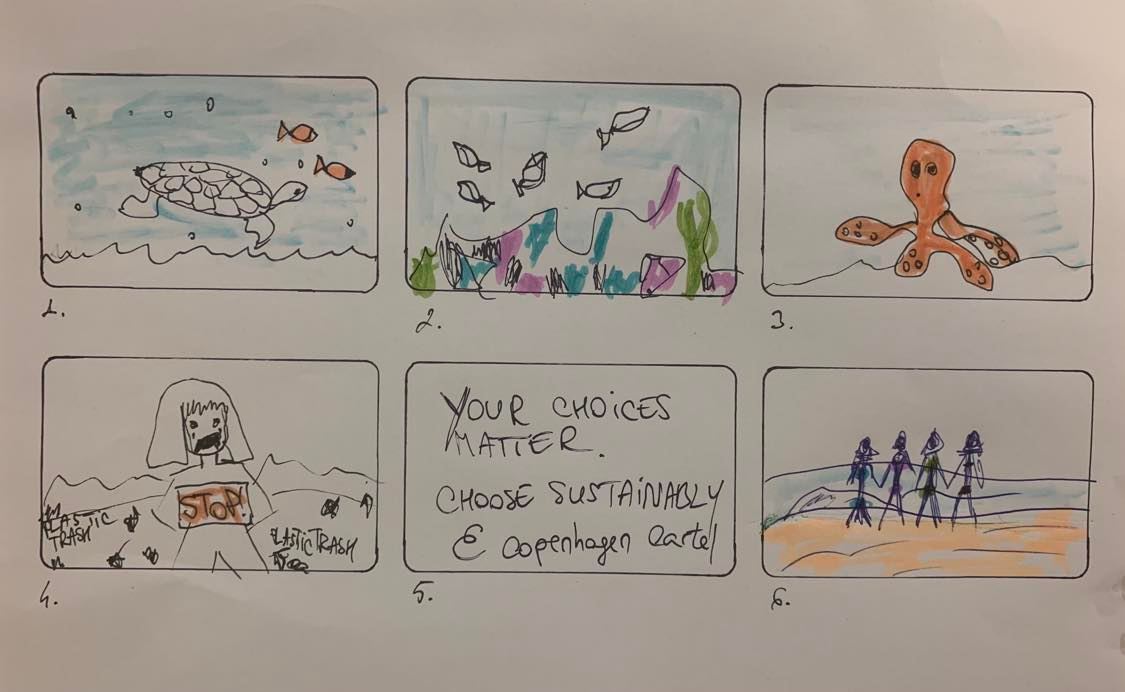 1.
2.
3.
STOP!
PLASTIC
TRASH
PLASTIC TRASH
4.
YOUR CHOICES
MATTER.
CHOOSE SUSTAINABLY
& Copenhagen Cartel
5.
6.